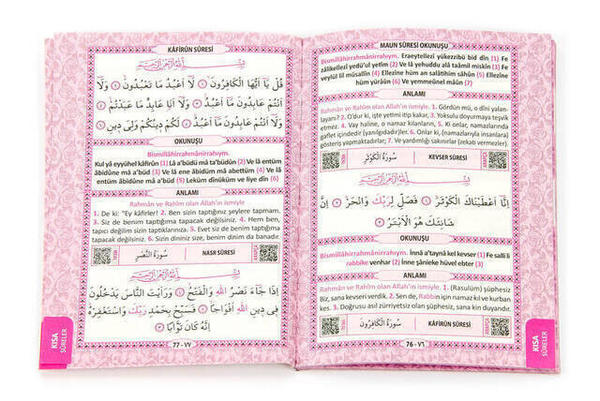 MAUN SÛRESİ OKUNUŞU
Bismillâhirrahmânirrahîym. Eraeytellezi yükezzibü bid dîn (1) Fe
zâlikellezi yedü'ul yetîm (2) Ve lâ yehuddu alâ taâmil miskîn (3) Fe
veylül lil müsallîn (4) Ellezîne hüm an salâthihim sâhûn (5) Ellezîne
hüm yürâûn (6) Ve yemneûnel mâun (7)
ANLAMI
Rahmân ve Rahîm olan Allah'ın ismiyle. 1. Gördün mü, o dîni yalan-
layanı? 2. O'dur ki, işte yetimi itip kakar, 3. Yoksulu doyurmaya teşvik
etmez. 4. Vay haline, o namaz kılanların, 5. Ki onlar, namazlarında
gaflet içindedir (yanılgıdadır)ler. 6. Onlar ki, (namazlarıyla insanlara)
gösteriş yapmaktadırlar; 7. Ve yardımlığı sakınırlar (zekatı vermezler).
سُورَةُ الْكَوْثَرِ
KEVSER SÛRESİ
إِنَّا أَعْطَيْنَاكَ الْكَوْثَرَ ۝١ فَصَلِّ لِرَبِّكَ وَانْحَرْ ۝٢ إِنَّ
شَانِئَكَ هُوَ الْأَبْتَرُ ۝٣
OKUNUŞU
Bismillâhirrahmânirrahîym. İnnâ a'taynâ kel kevser (1) Fe salli li
rabbike venhar (2) İnne şânieke hüvel ebter (3)
ANLAMI
Rahmân ve Rahîm olan Allah'ın ismiyle. 1. (Rasulüm) şüphesiz
Biz, sana kevseri verdik. 2. Sen de, Rabbin için namaz kıl ve kurban
kes. 3. Doğrusu asıl zürriyetsiz olan, şüphesiz, sana kin duyandır.
سُورَةُ الْكَافِرُونَ
KÂFİRÛN SÛRESİ
76 - ٧٦
KISA
SÛRELER
KÂFİRÛN SÛRESİ
قُلْ يَا أَيُّهَا الْكَافِرُونَ ۝١ لَا أَعْبُدُ مَا تَعْبُدُونَ ۝٢ وَلَا
أَنْتُمْ عَابِدُونَ مَا أَعْبُدُ ۝٣ وَلَا أَنَا عَابِدٌ مَا عَبَدْتُمْ ۝٤
وَلَا أَنْتُمْ عَابِدُونَ مَا أَعْبُدُ ۝٥ لَكُمْ دِينُكُمْ وَلِيَ دِينِ ۝٦
OKUNUŞU
Bismillâhirrahmânirrahîym.
Kul yâ eyyühel kâfirûn (1) Lâ a'büdü mâ ta'büdûn (2) Ve lâ entüm
âbidûne mâ a'büd (3) Ve lâ ene âbidüm mâ abettüm (4) Ve lâ
entüm âbidûne mâ a'büd (5) Leküm dînüküm ve liye dîn (6)
ANLAMI
Rahmân ve Rahîm olan Allah'ın ismiyle
1. De ki: "Ey kâfirler! 2. Ben sizin taptığınız şeylere tapmam.
3. Siz de benim taptığıma tapacak değilsiniz. 4. Hem ben,
tapıcı değilim sizin taptıklarınıza. 5. Evet siz de benim taptığıma
tapacak değilsiniz. 6. Sizin dininiz size, benim dinim da banadır.
سُورَةُ النَّصْرِ
NASR SÛRESİ
إِذَا جَاءَ نَصْرُ اللّٰهِ وَالْفَتْحُ ۝١ وَرَأَيْتَ النَّاسَ يَدْخُلُونَ
فِي دِينِ اللّٰهِ أَفْوَاجًا ۝٢ فَسَبِّحْ بِحَمْدِ رَبِّكَ وَاسْتَغْفِرْهُ
إِنَّهُ كَانَ تَوَّابًا ۝٣
77 - ٧٧
KISA
SÛRELER